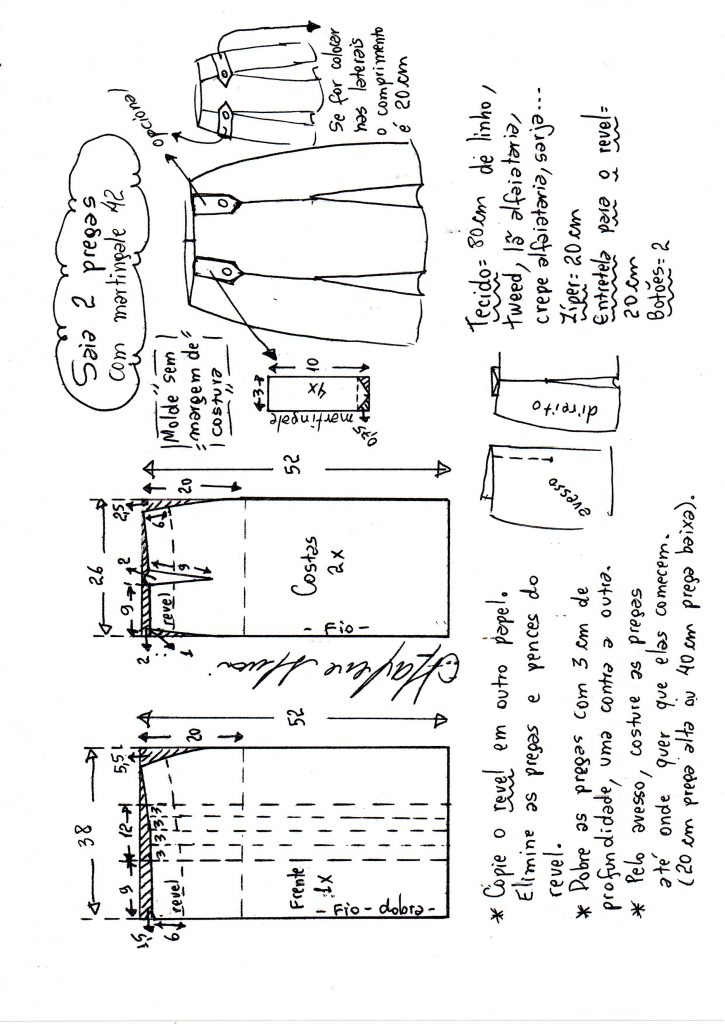 Saia 2 pregas
com martingale 42
opcional
Se for colocar
nas laterais
o comprimento
é 20 cm
"Molde sem"
"margem de"
"costura"
3
10
4x
martingale
0,75
38
9
12
5,5
1,5
3 3 3 3
6
revel
20
52
Frente
1x
- Fio - dobra -
26
9
2
2,5
2
1
9
6
revel
20
52
Costas
2x
- Fio -
Marlene Mukai
Tecido = 80 cm de linho,
tweed, lã alfaiataria,
crepe alfaiataria, sarja...
Zíper: 20 cm
Entretela para o revel=
20 cm
Botões = 2
avesso
direito
* Copie o revel em outro papel.
Elimine as pregas e pences do
revel.
* Dobre as pregas com 3 cm de
profundidade, uma contra a outra.
* Pelo avesso, costure as pregas
até onde quer que elas comecem.
(20 cm prega alta ou 40 cm prega baixa).